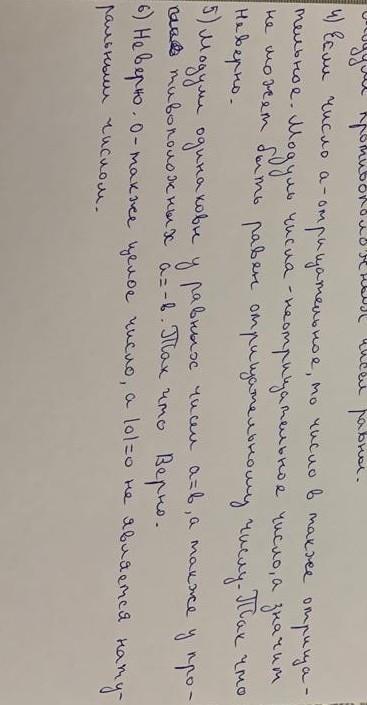 модули противоположных чисел равны.
4) Если число а-отрицательное, то число в также отрица-
тельное. Модуль числа - неотрицательное число, а значит
не может быть равен отрицательному числу. Так что
Неверно.
5) Модули одинаковы у равных чисел а=в, а также у про-
тивоположных а=-в. Так что Верно.
6) Неверно. 0-также целое число, а |0|=0 не является нату-
ральным числом.